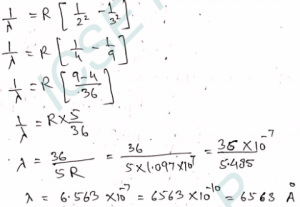 1/λ = R [ 1/2² - 1/3² ]
1/λ = R [ 1/4 - 1/9 ]
1/λ = R [ 9-4/36 ]
1/λ = R × 5/36
λ = 36/5R = 36/5×1.097×10⁷ = 36×10⁻⁷/5.485
λ = 6.563×10⁻⁷ = 6563×10⁻¹⁰ = 6563 Å